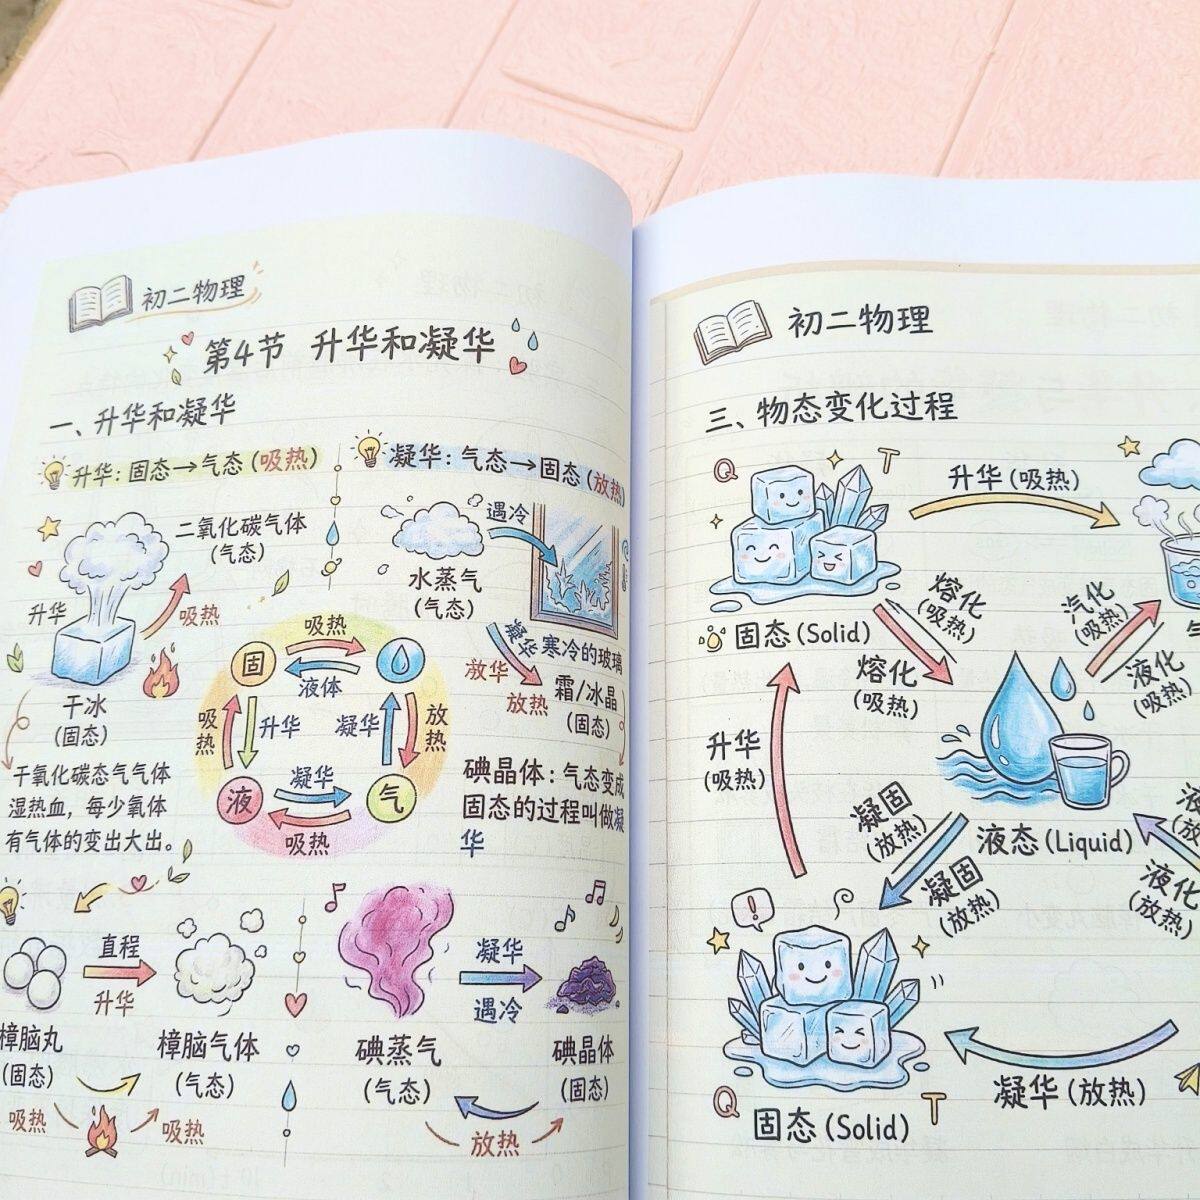 初二物理
第4节 升华和凝华
一、升华和凝华
升华：固态→气态(吸热)
凝华：气态→固态(放热)
二氧化碳气体
(气态)
升华
吸热
干冰
(固态)
干氧化碳态气气体
湿热血，每少氧体
有气体的变出大出。
遇冷
水蒸气
(气态)
凝华
寒冷的玻璃
放华
放热
霜/冰晶
(固态)
吸热
固
液体
吸热
升华
凝华
放热
液
凝华
气
吸热
碘晶体：气态变成
固态的过程叫做凝
华
直程
升华
樟脑丸
(固态)
樟脑气体
(气态)
吸热
吸热
凝华
遇冷
碘蒸气
(气态)
碘晶体
(固态)
放热
初二物理
三、物态变化过程
Q
T
升华(吸热)
固态(Solid)
熔化
(吸热)
熔化
(吸热)
汽化
(吸热)
液化
(吸热)
升华
(吸热)
凝固
(放热)
凝固
(放热)
液态(Liquid)
液化
(放热)
!
凝华(放热)
Q
T
固态(Solid)